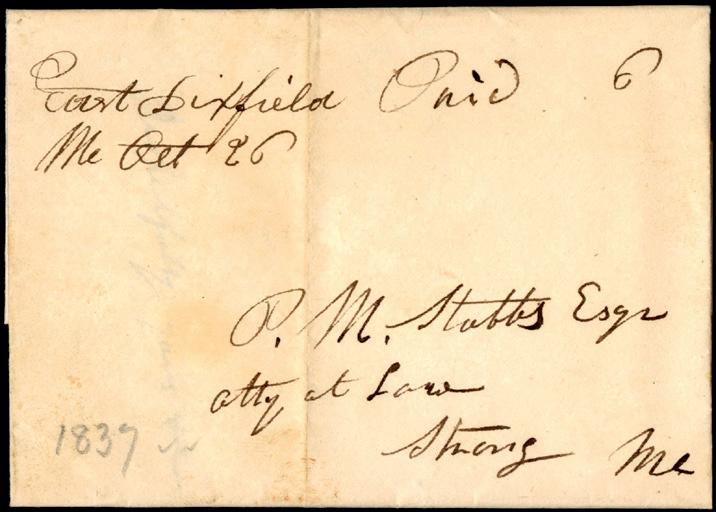 East Dixfield Paid 6
Me Oct 26
P. M. Stubbs Esqr
atty at Law
Strong Me
1837